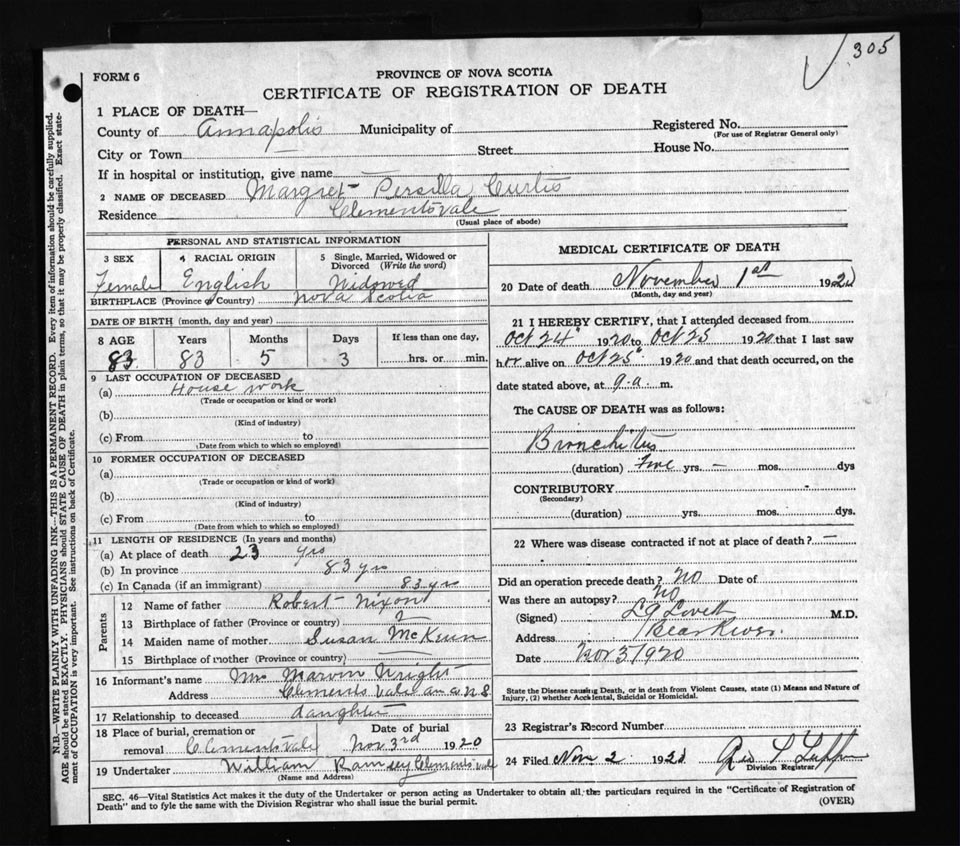 305
FORM 6
PROVINCE OF NOVA SCOTIA
CERTIFICATE OF REGISTRATION OF DEATH
1 PLACE OF DEATH—
County of Annapolis Municipality of Registered No.
(For use of Registrar General only)
City or Town Street House No.
If in hospital or institution, give name —
2 NAME OF DECEASED Margret Persilla Curtis
Residence Clementsvale
(Usual place of abode)
PERSONAL AND STATISTICAL INFORMATION
3 SEX 4 RACIAL ORIGIN 5 Single, Married, Widowed or Divorced (Write the word)
Female English Widowed
BIRTHPLACE (Province or Country) Nova Scotia
DATE OF BIRTH (month, day and year)
8 AGE Years Months Days If less than one day,
83 83 5 3 hrs. or min.
9 LAST OCCUPATION OF DECEASED
(a) House work
(Trade or occupation or kind or work)
(b)
(Kind of industry)
(c) From to
(Date from which to which so employed)
10 FORMER OCCUPATION OF DECEASED
(a)
(Trade or occupation or kind or work)
(b)
(Kind of industry)
(c) From to
(Date from which to which so employed)
11 LENGTH OF RESIDENCE (In years and months)
(a) At place of death 23 yrs
(b) In province 83 yrs
(c) In Canada (if an immigrant) 83 yrs
Parents
12 Name of father Robert Nixon
13 Birthplace of father (Province or country)
14 Maiden name of mother Susan
15 Birthplace of mother (Province or country)
16 Informant's name Mrs Marvin Wright
Address Clements Vale N S
17 Relationship to deceased daughter
18 Place of burial, cremation or removal Clementsvale Date of burial Nov 3rd 1920
19 Undertaker William Ramsey Clementsvale
(Name and Address)
MEDICAL CERTIFICATE OF DEATH
20 Date of death November 1st 1920
(Month, day and year)
21 I HEREBY CERTIFY, that I attended deceased from
Oct 24 1920 to Oct 25 1920 that I last saw
her alive on Oct 25 1920 and that death occurred, on the
date stated above, at 9 a. m.
The CAUSE OF DEATH was as follows:
Bronchitis
(duration) Five yrs. — mos. dys
CONTRIBUTORY
(Secondary)
(duration) yrs. mos. dys.
22 Where was disease contracted if not at place of death? —
Did an operation precede death? No Date of
Was there an autopsy? No
(Signed) L J Lovett M.D.
Address Bear River.
Date Nov 3 1920
State the Disease causing Death, or in death from Violent Causes, state (1) Means and Nature of
Injury, (2) whether Accidental, Suicidal or Homicidal.
23 Registrar's Record Number
24 Filed Nov 2 192
Division Registrar
SEC. 46—Vital Statistics Act makes it the duty of the Undertaker or person acting as Undertaker to obtain all the particulars required in the "Certificate of Registration of
Death" and to fyle the same with the Division Registrar who shall issue the burial permit.
(OVER)
N.B.—WRITE PLAINLY WITH UNFADING INK—THIS IS A PERMANENT RECORD. Every item of information should be carefully supplied.
AGE should be stated EXACTLY. PHYSICIANS should STATE CAUSE OF DEATH in plain terms, so that it may be properly classified. Exact state-
ment of OCCUPATION is very important. See instructions on back of Certificate.